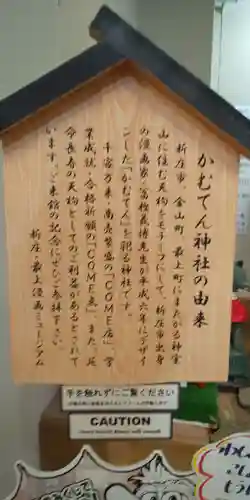 かむてん神社の由来
新庄市、金山町、最上町にまたがる神室
山に住む天狗をモチーフにして、新庄市出身
の漫画家・冨樫義博先生が平成六年にデザイ
ンした「かむてん」を祀る神社です。
千客万来・商売繁盛の「COME店」学
業成就・合格祈願の「COME天」また、延
命長寿の天狗としてのご利益があるとされて
います。ご来館の記念にぜひご参拝下さい。
新庄・最上漫画ミュージアム
手を触れずにご覧ください
CAUTION